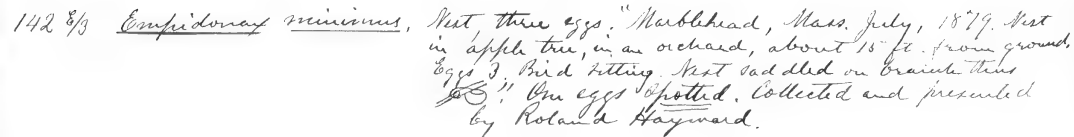 142 E/3 Empidonax minimus, Nest, three eggs. "Marblehead, Mass. July, 1879. Nest
in apple tree, in an orchard, about 15 ft. from ground,
Eggs 3. Bird sitting. Nest saddled on branch thus
" One eggs spotted. Collected and presented
by Roland Hayward.